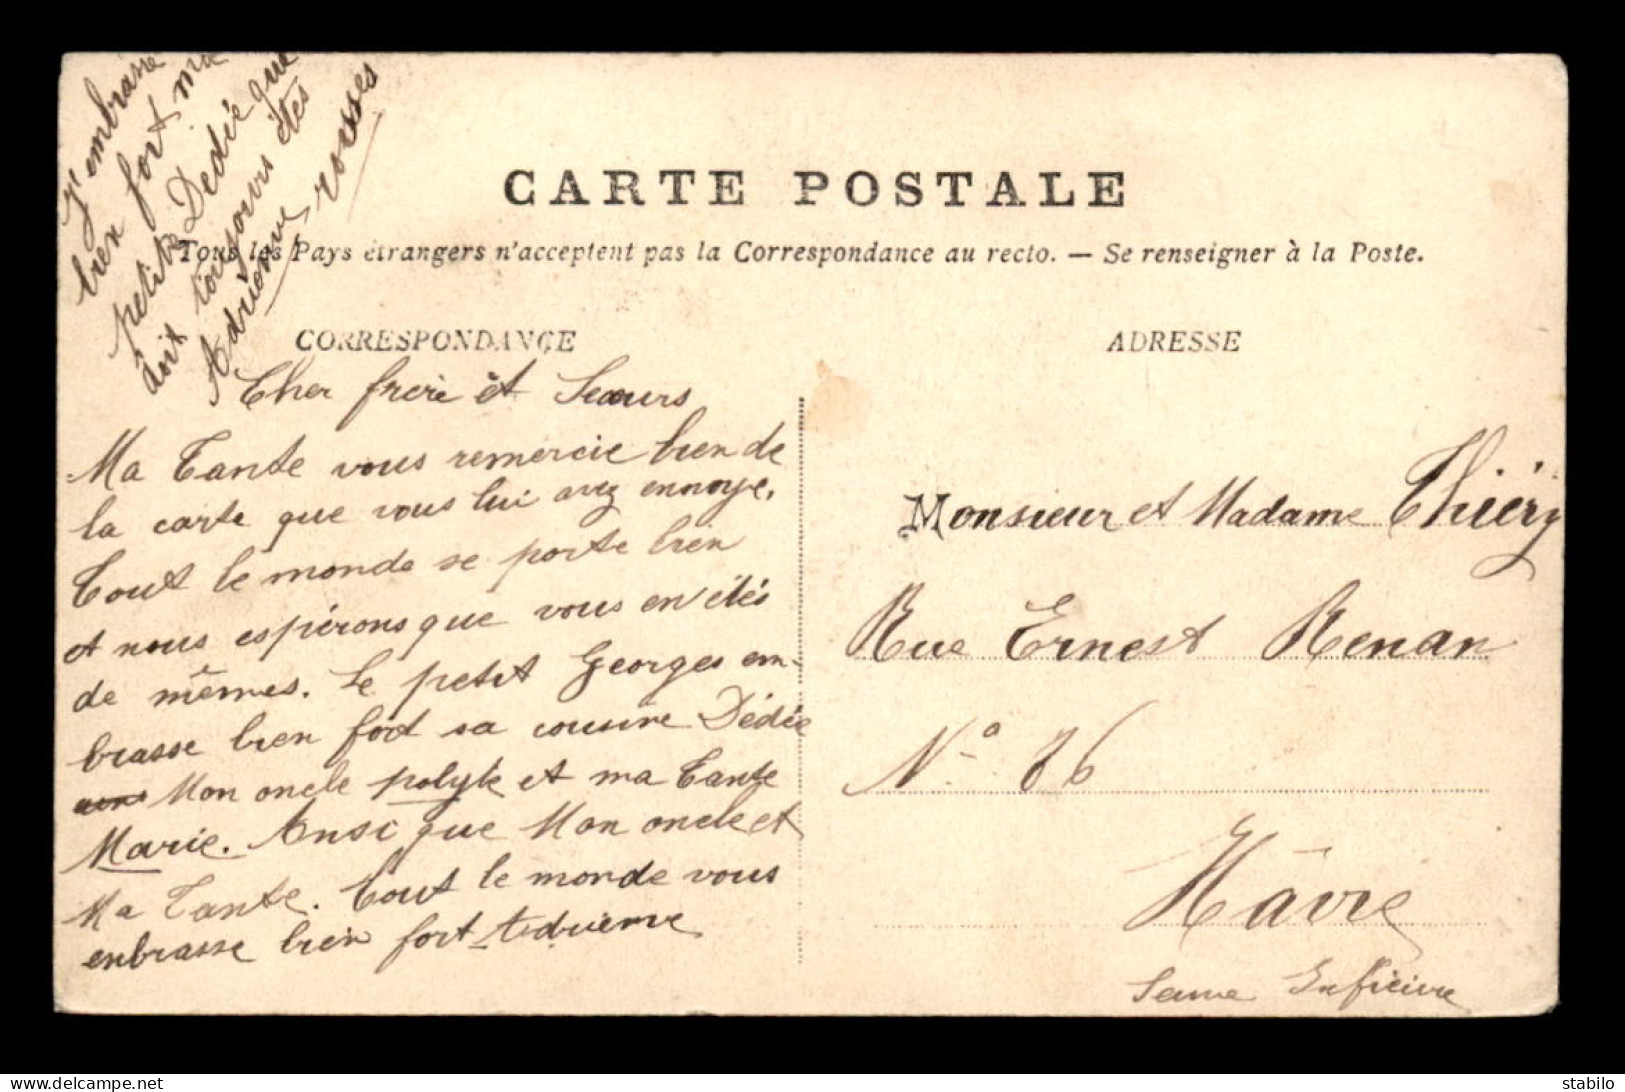 J'embrasse
bien fort ma
petite Dédée que
doit toujours êtes
Adrienne, rousses
CARTE POSTALE
Tous les Pays étrangers n'acceptent pas la Correspondance au recto. — Se renseigner à la Poste.
CORRESPONDANCE
Cher frère et Seœurs
Ma Tante vous remercie bien de
la carte que vous lui avez envoye.
Tout le monde se porte bien
et nous espérons que vous en êtes
de mêmes. Le petit Georges em-
brasse bien fort sa cousine Dédée
Mon oncle polyte et ma Tante
Marie. Ansi que Mon oncle et
Ma Tante. Tout le monde vous
enbrasse bien fort Adrienne
ADRESSE
Monsieur et Madame Thiéry
Rue Ernest Renan
N° 86
Hâvre
Seine Inférieure
stabilo